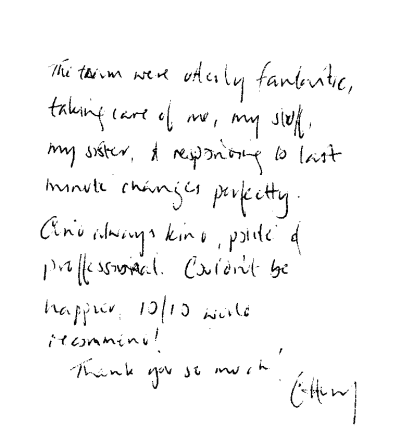 The team were utterly fantastic,
taking care of me, my stuff,
my sister, & responding to last
minute changes perfectly.
And always kind, polite &
proffessional. Couldn't be
happier. 10/10 would
recommend!
Thank you so much!